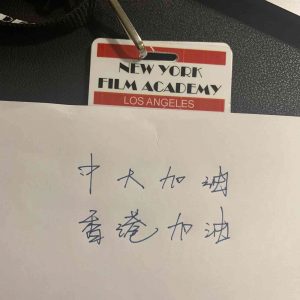 NEW YORK
FILM ACADEMY
LOS ANGELES
中大加油
香港加油